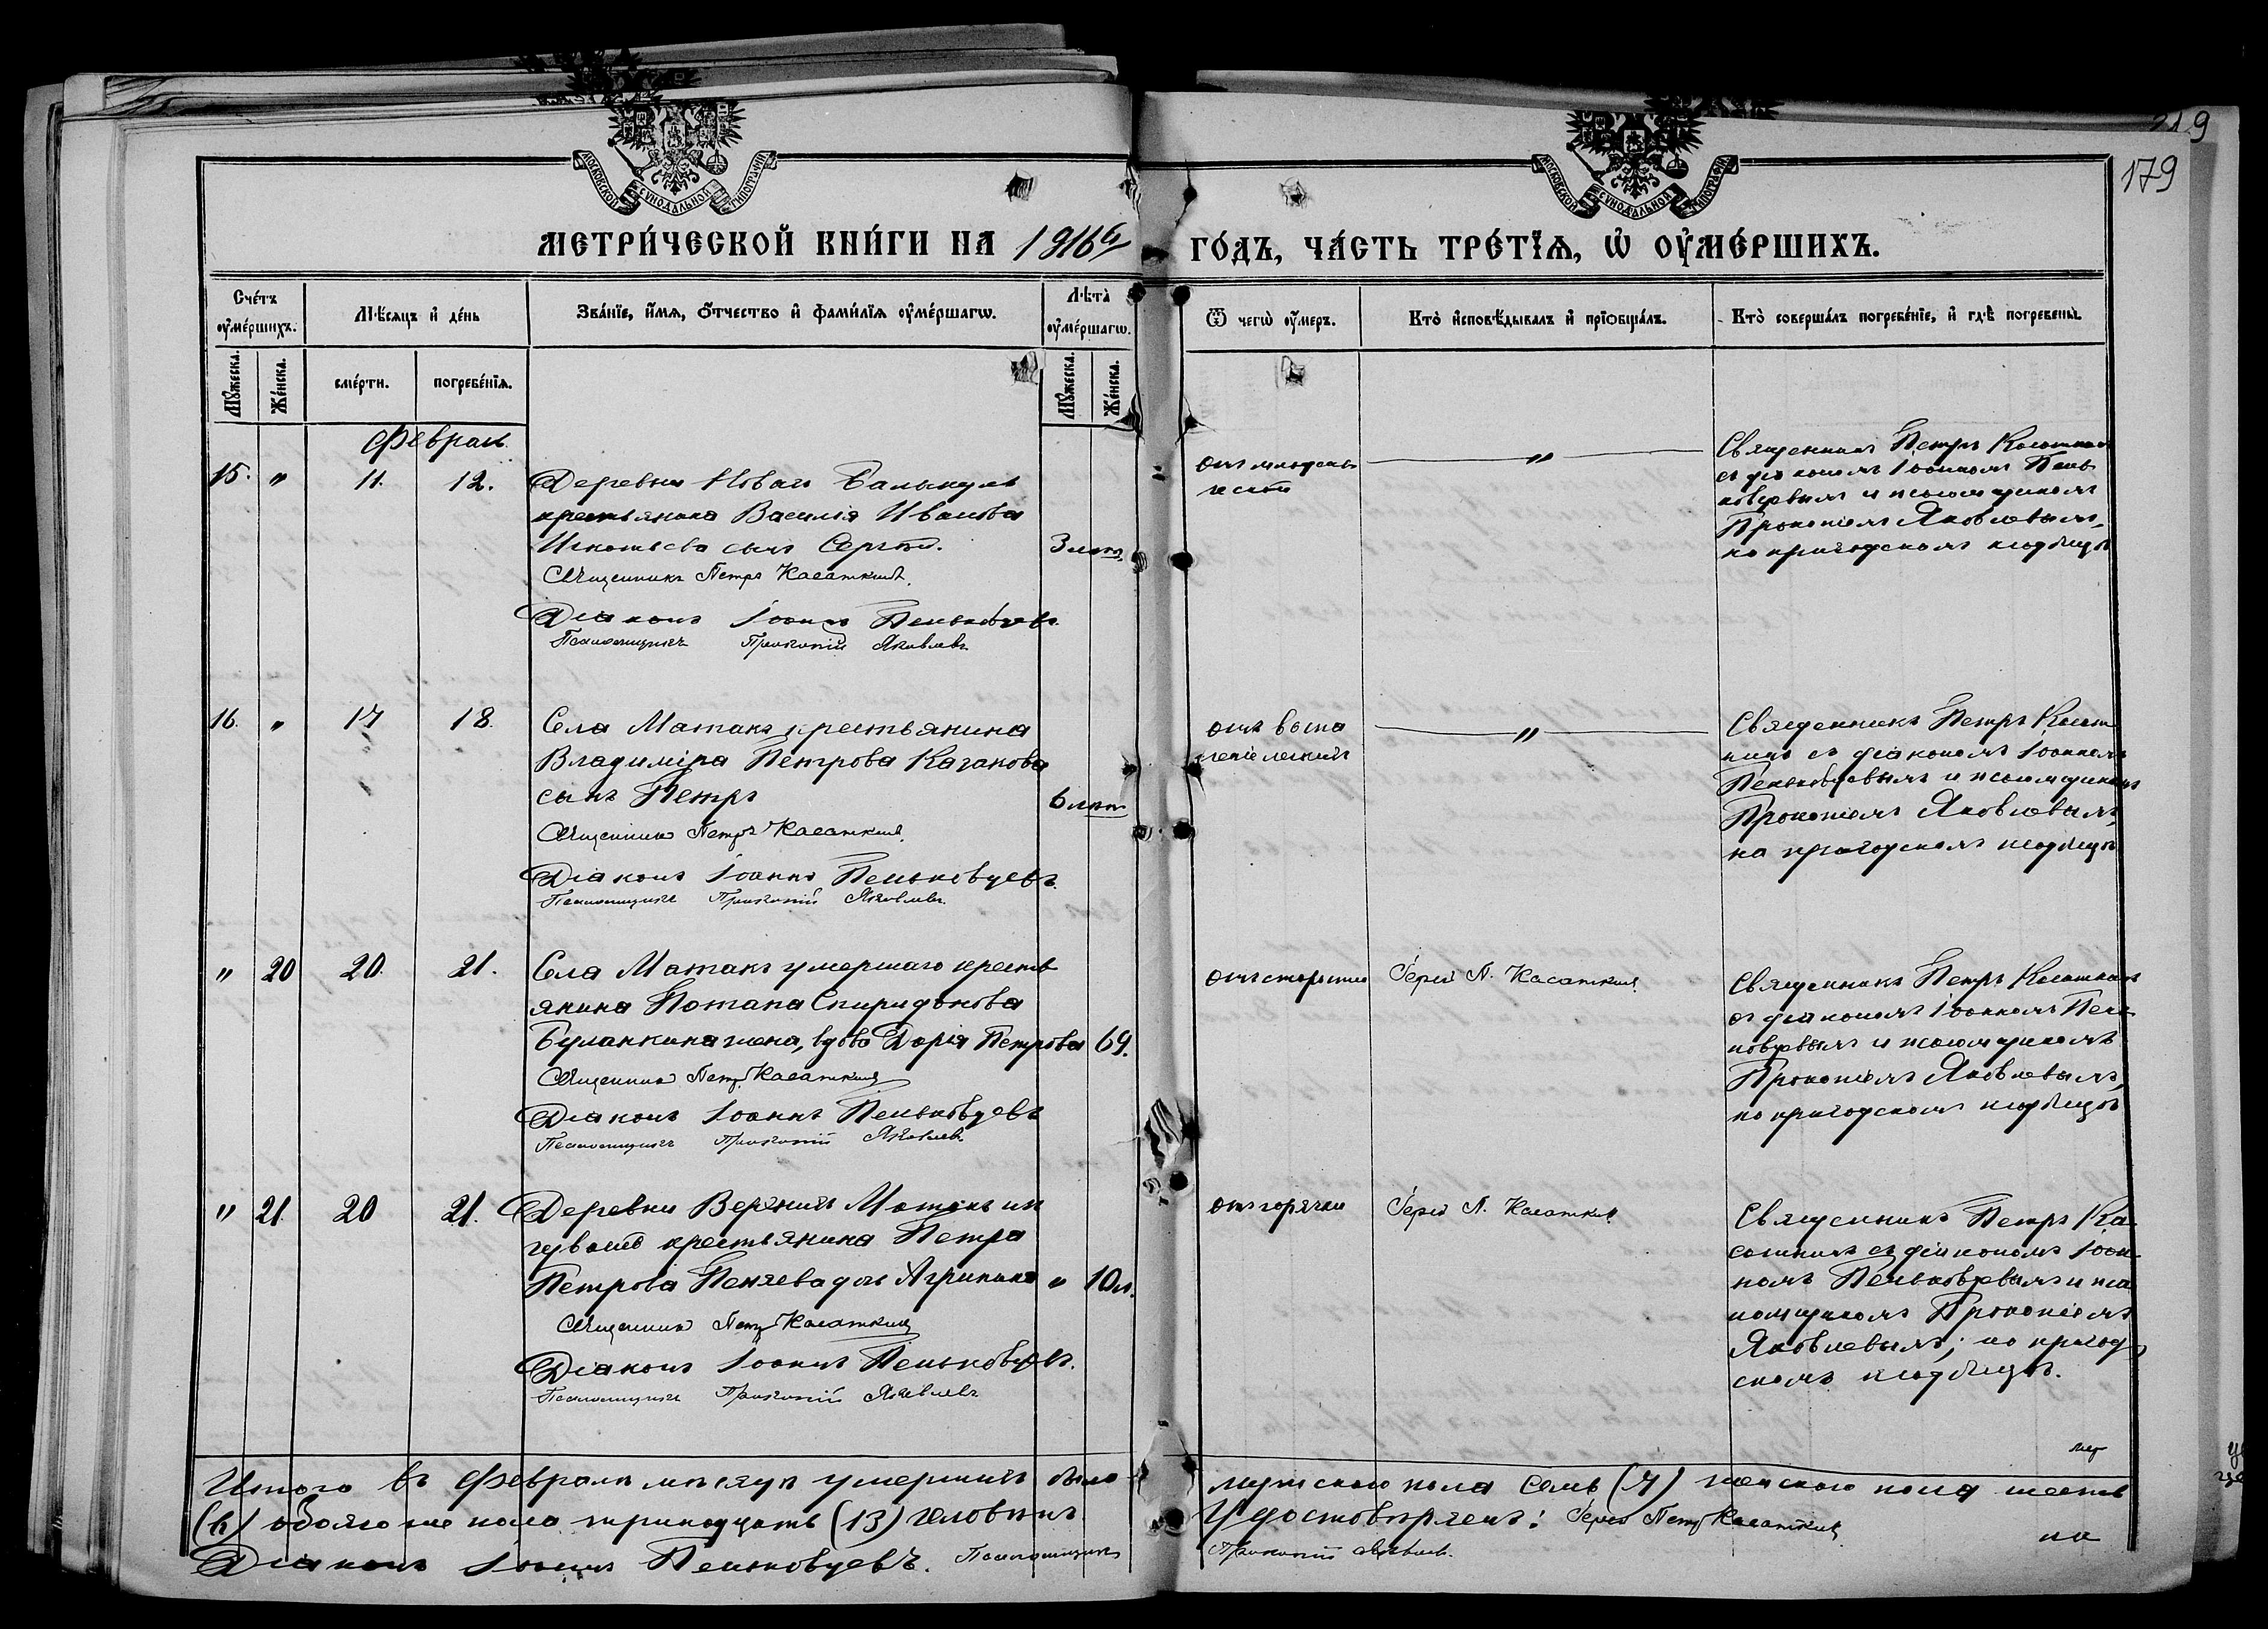 219
179
МОСКОВСКОЙ СѴНОДАЛЬНОЙ ТИПОГРАФІИ
МОСКОВСКОЙ СѴНОДАЛЬНОЙ ТИПОГРАФІИ
МЕТРИ́ЧЕСКОЙ КНИ́ГИ НА 1916 ГО́ДЪ, ЧА́СТЬ ТРЕ́ТЇѦ, Ѡ҆ ОУ҆МЕ́РШИХЪ.
Сче́тъ оу҆ме́ршихъ.
Мꙋ́жеска.
Же́нска.
Мѣ́сяцъ и҆ де́нь
сме́рти.
погребе́нїѧ.
Зва́нїе, и҆́мѧ, ѻ҆́тчество и҆ фами́лїѧ оу҆ме́ршагѡ.
Лѣ́та оу҆ме́ршагѡ.
Мꙋ́жеска.
Же́нска.
Ѿ чегѡ̀ оу҆́меръ.
Кто̀ и҆сповѣ́дывалъ и҆ прїѡбща́лъ.
Кто̀ соверша́лъ погребе́нїе, и҆ гдѣ̀ погребены̀.
Февраль
15. " 11. 12.
Деревни Новаго Балыкуль
крестьянина Василія Иванова
Игнатьева сынъ Сергѣй.
3 лѣтъ
Священникъ Петръ Касаткинъ.
Діаконъ Іоаннъ Пеньковцевъ.
Псаломщикъ Прокопій Яковлевъ
отъ младен-
ческой
"
Священникъ Петръ Касаткинъ
съ діакономъ Іоанномъ Пень-
ковцевымъ и псаломщикомъ
Прокопіемъ Яковлевымъ,
на приходскомъ кладбищѣ
16. " 17 18.
Села Матакъ крестьянина
Владиміра Петрова Казакова
сынъ Петръ
6 лѣтъ
Священникъ Петръ Касаткинъ
Діаконъ Іоаннъ Пеньковцевъ.
Псаломщикъ Прокопій Яковлевъ.
отъ воспа
леніе легкихъ
"
Священникъ Петръ Касат-
кинъ съ діакономъ Іоанномъ
Пеньковцевымъ и псаломщикомъ
Прокопіемъ Яковлевымъ,
на приходскомъ кладбищѣ
" 20 20. 21.
Села Матакъ умершаго кресть
янина Потапа Спиридонова
Буланкина жена, вдова Дарія Петрова
69.
Священникъ Петръ Касаткинъ
Діаконъ Іоаннъ Пеньковцевъ
Псаломщикъ Прокопій Яковлевъ
отъ старости
Іерей П. Касаткинъ
Священникъ Петръ Касаткинъ
съ діакономъ Іоанномъ Пень-
ковцевымъ и псаломщикомъ
Прокопіемъ Яковлевымъ,
на приходскомъ кладбищѣ
" 21. 20 21.
Деревни Верхнихъ Матакъ из
чувашъ крестьянина Петра
Петрова Пеняева дочь Агрипина
" 10 л.
Священникъ Петръ Касаткинъ
Діаконъ Іоаннъ Пеньковцевъ.
Псаломщикъ Прокопій Яковлевъ
отъ горячки
Іерей П. Касаткинъ
Священникъ Петръ Ка-
саткинъ съ діакономъ Іоан-
номъ Пеньковцевымъ и пса
ломщикомъ Прокопіемъ
Яковлевымъ, на приход-
скомъ кладбищѣ.
Итого въ Февралѣ мѣсяцѣ умершихъ было мужскаго пола семь (7) женскаго пола шесть
(6) обоего же пола тринадцать (13) человѣкъ. Удостовѣряемъ: Іерей Петръ Касаткинъ
Діаконъ Іоаннъ Пеньковцевъ. Псаломщикъ Прокопій Яковлевъ.